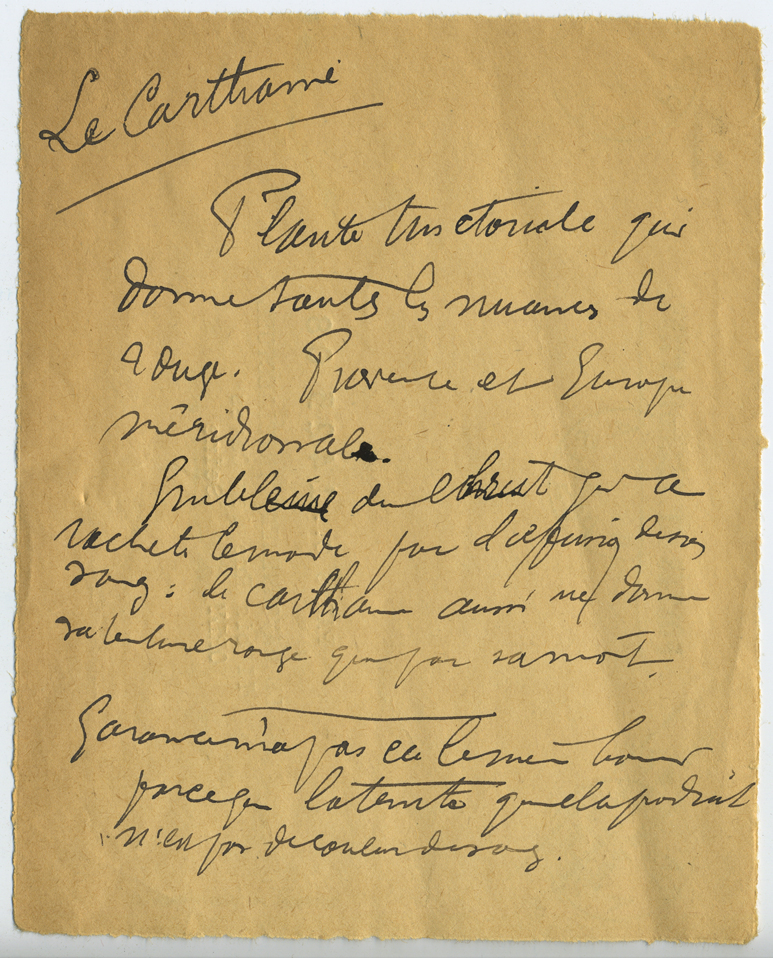 Le Carthame
Plante tinctoriale qui
donne toutes les nuances de
rouge. Provence et Europe
méridionale.
Emblème du Christ qui a
racheté le monde par l'effusion de son
sang : le carthame aussi ne donne
sa teinture rouge que par sa mort.
Garance n'a pas eu le même honneur
parce que la teinte quela produit
n'est pas de couleur de sang.